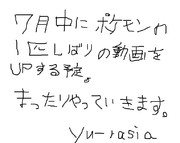 7月中にポケモンの
1匹しばりの動画を
UPする予定。
まったりやっていきます。
yu-rasia